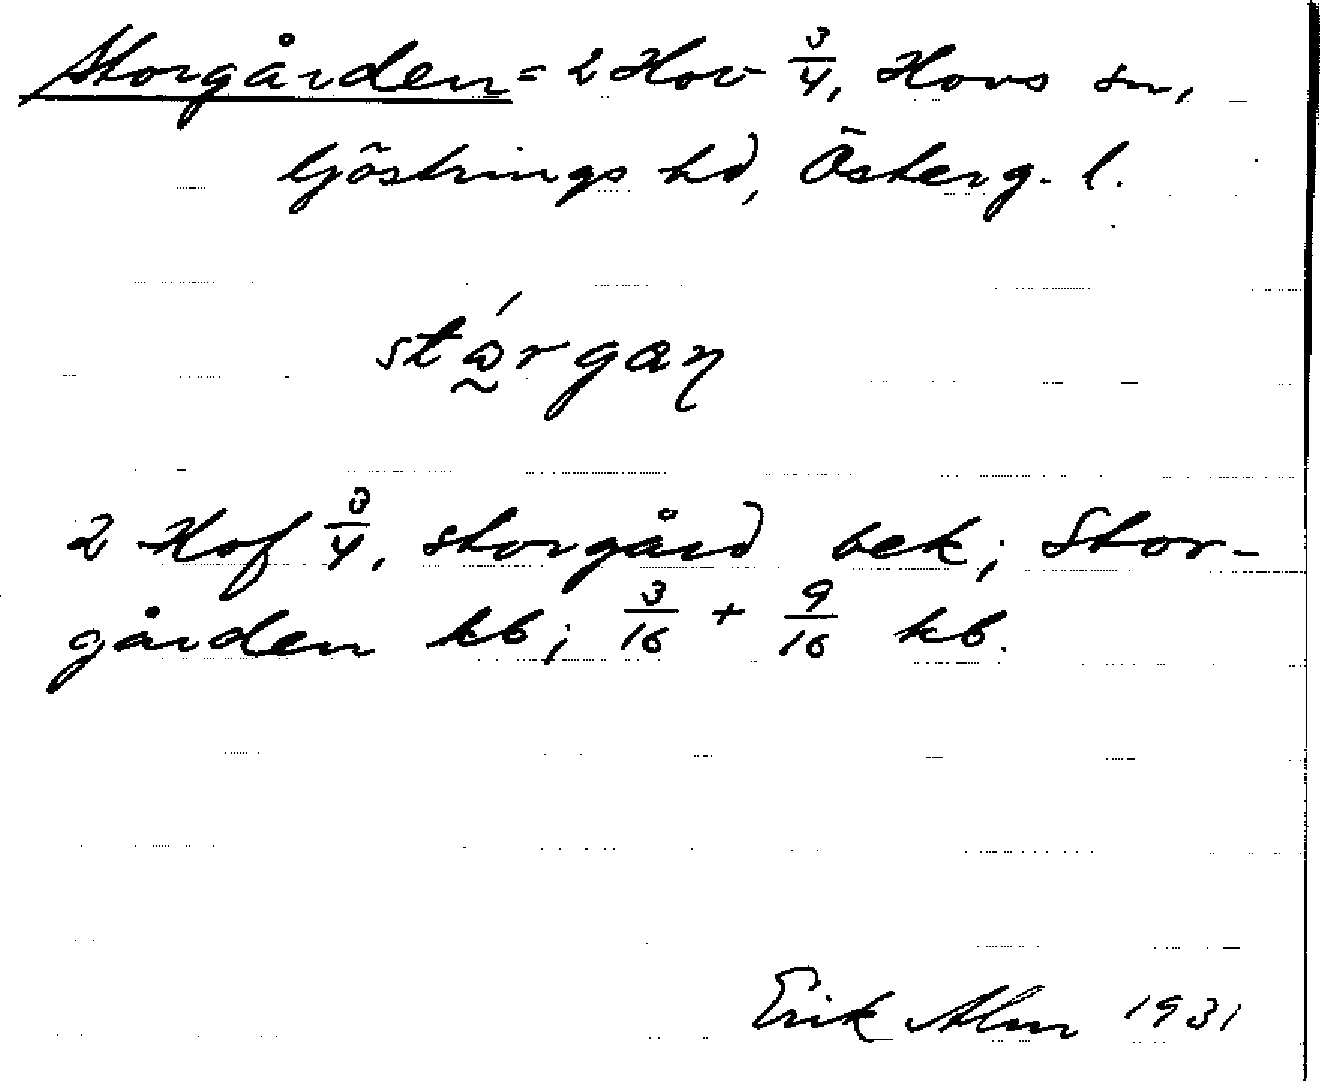 Storgården = 2 Hov 3/4, Hovs sn,
Göstrings hd, Österg. l.
stórgan
2 Hof 3/4, storgård bek; Stor-
gården kb; 3/16 + 9/16 kb.
Erik Alm 1931